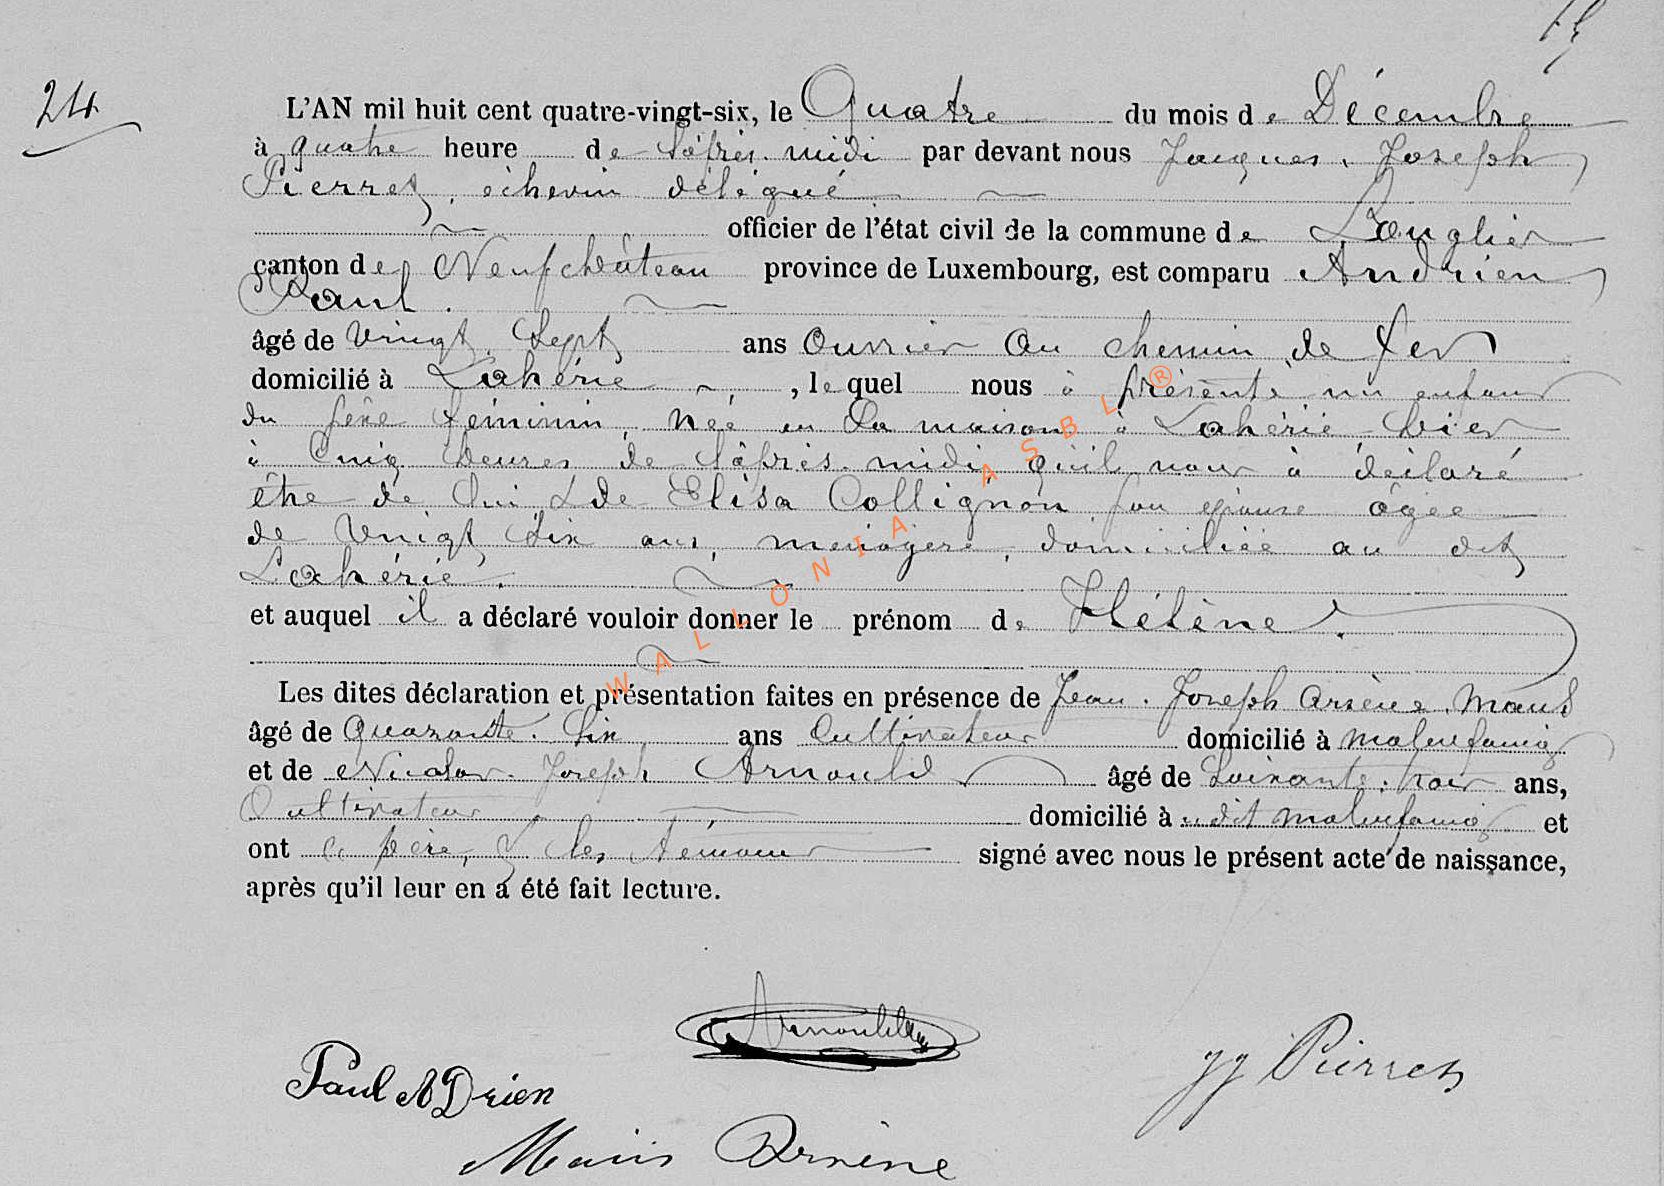 24
L'AN mil huit cent quatre-vingt-six, le Quatre du mois de Décembre
à quatre heure de l'après-midi par devant nous Jacques, Joseph
Pierret, échevin délégué
officier de l'état civil de la commune de Longlier
canton de Neufchâteau province de Luxembourg, est comparu Andrien
Paul.
âgé de Vingt Sept ans Ouvrier Au chemin de fer
domicilié à Lahérie, lequel nous à présenté un enfant
du sexe féminin, née en la maison à Lahérie
à Cinq heures de l'après-midi qu'il nous à déclaré
être de lui & de Elisa Collignon son épouse âgée
de Vingt Six ans, ménagère, domiciliée au dit
Lahérie.
et auquel il a déclaré vouloir donner le prénom de Hélène.
Les dites déclaration et présentation faites en présence de Jean, Joseph Arsène
âgé de Quarante-Six ans Cultivateur domicilié à Molinfaing
et de Nicolas-Joseph Arnould âgé de Soixante-trois ans,
Cultivateur domicilié à dit Molinfaing et
ont le père, & les témoins signé avec nous le présent acte de naissance,
après qu'il leur en a été fait lecture.
Arnould
Paul ADrien
JJ Pierret
Arsène
WALLONIA ASBL ®